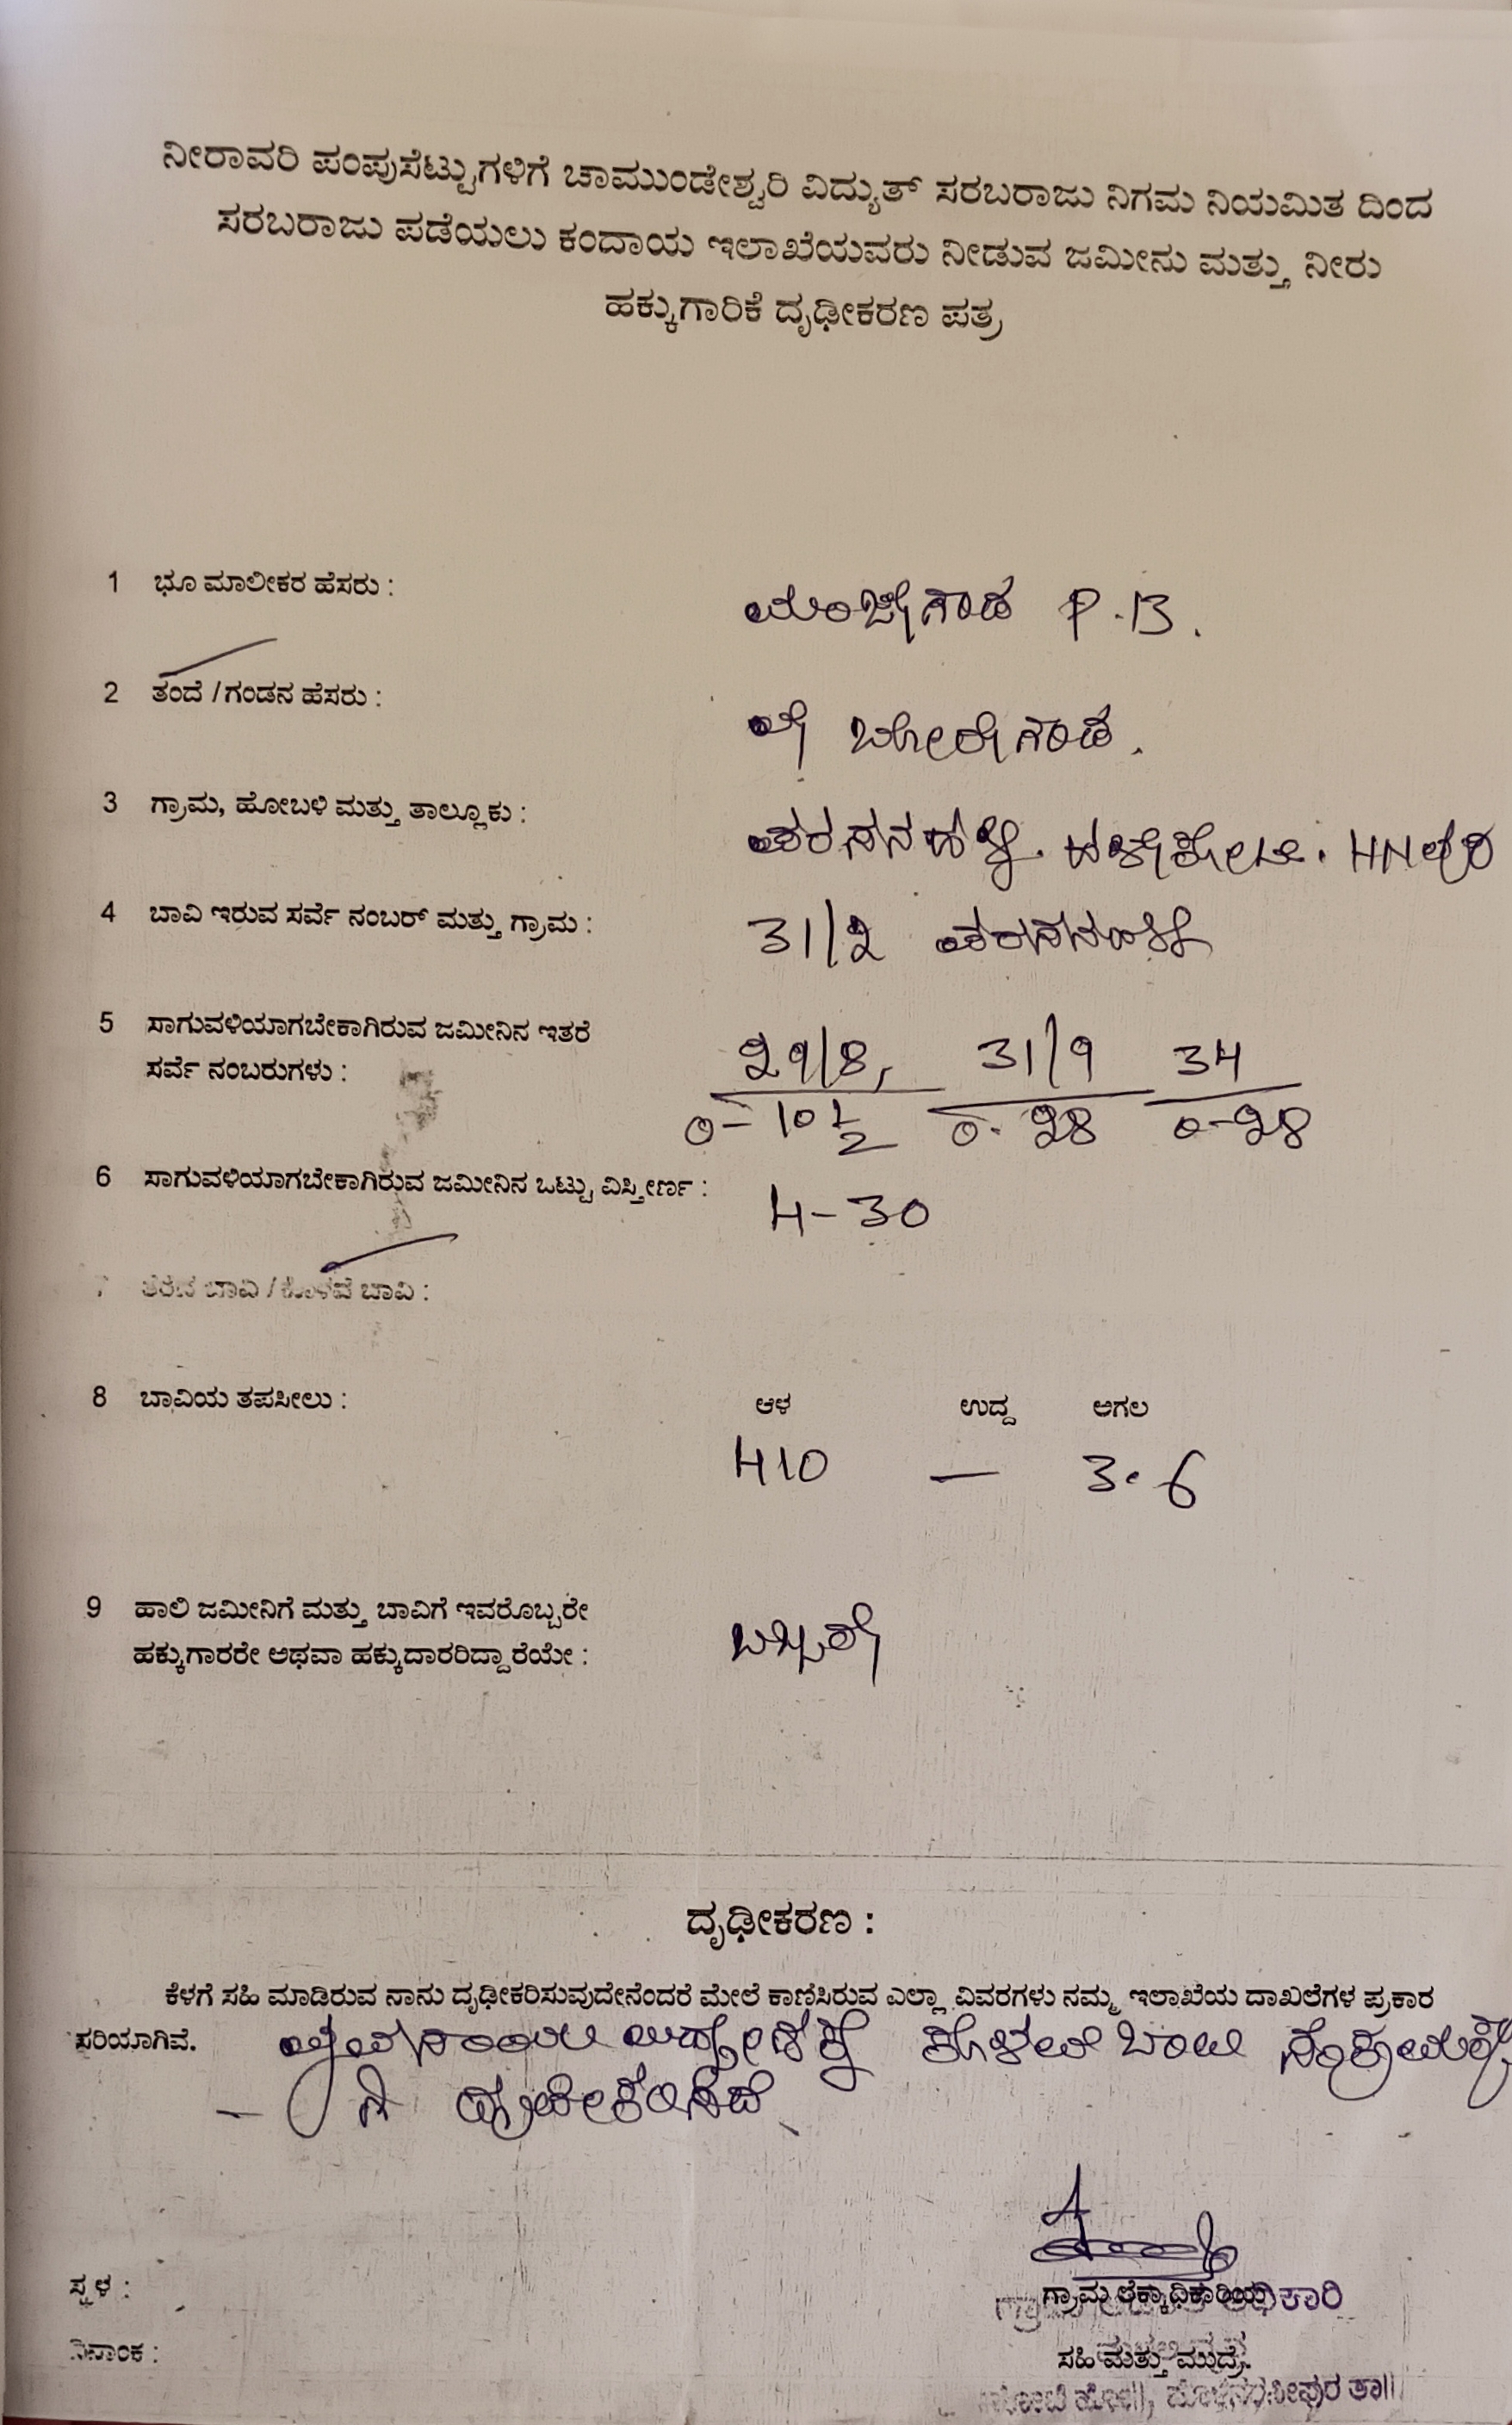 ನೀರಾವರಿ ಪಂಪುಸೆಟ್ಟುಗಳಿಗೆ ಚಾಮುಂಡೇಶ್ವರಿ ವಿದ್ಯುತ್ ಸರಬರಾಜು ನಿಗಮ ನಿಯಮಿತ ದಿಂದ
ಸರಬರಾಜು ಪಡೆಯಲು ಕಂದಾಯ ಇಲಾಖೆಯವರು ನೀಡುವ ಜಮೀನು ಮತ್ತು ನೀರು
ಹಕ್ಕುಗಾರಿಕೆ ದೃಢೀಕರಣ ಪತ್ರ
1 ಭೂ ಮಾಲೀಕರ ಹೆಸರು : ಮಂಜೇಗೌಡ P.B.
2 ತಂದೆ / ಗಂಡನ ಹೆಸರು : ಬೋರೇಗೌಡ.
3 ಗ್ರಾಮ, ಹೋಬಳಿ ಮತ್ತು ತಾಲ್ಲೂಕು : ಹಳೇಕೋಟೆ. HNಪುರ
4 ಬಾವಿ ಇರುವ ಸರ್ವೆ ನಂಬರ್ ಮತ್ತು ಗ್ರಾಮ : 31/2
5 ಸಾಗುವಳಿಯಾಗಬೇಕಾಗಿರುವ ಜಮೀನಿನ ಇತರೆ
ಸರ್ವೆ ನಂಬರುಗಳು : 29/8, 31/9 34
0-10 1/2 0-28 0-28
6 ಸಾಗುವಳಿಯಾಗಬೇಕಾಗಿರುವ ಜಮೀನಿನ ಒಟ್ಟು ವಿಸ್ತೀರ್ಣ : 4-30
7 ತೆರೆದ ಬಾವಿ / ಕೊಳವೆ ಬಾವಿ :
8 ಬಾವಿಯ ತಪಸೀಲು : ಆಳ ಉದ್ದ ಅಗಲ
410 — 3.6
9 ಹಾಲಿ ಜಮೀನಿಗೆ ಮತ್ತು ಬಾವಿಗೆ ಇವರೊಬ್ಬರೇ
ಹಕ್ಕುಗಾರರೇ ಅಥವಾ ಹಕ್ಕುದಾರರಿದ್ದಾರೆಯೇ : ಒಬ್ಬರೇ
ದೃಢೀಕರಣ :
ಕೆಳಗೆ ಸಹಿ ಮಾಡಿರುವ ನಾನು ದೃಢೀಕರಿಸುವುದೇನೆಂದರೆ ಮೇಲೆ ಕಾಣಿಸಿರುವ ಎಲ್ಲಾ ವಿವರಗಳು ನಮ್ಮ ಇಲಾಖೆಯ ದಾಖಲೆಗಳ ಪ್ರಕಾರ
ಸರಿಯಾಗಿವೆ. ಕೊಳವೆ ಬಾವಿ
ದೃಢೀಕರಿಸಿದೆ
ಸ್ಥಳ :
ಗ್ರಾಮ ಲೆಕ್ಕಾಧಿಕಾರಿಯ
ದಿನಾಂಕ :
ಸಹಿ ಮತ್ತು ಮುದ್ರೆ.